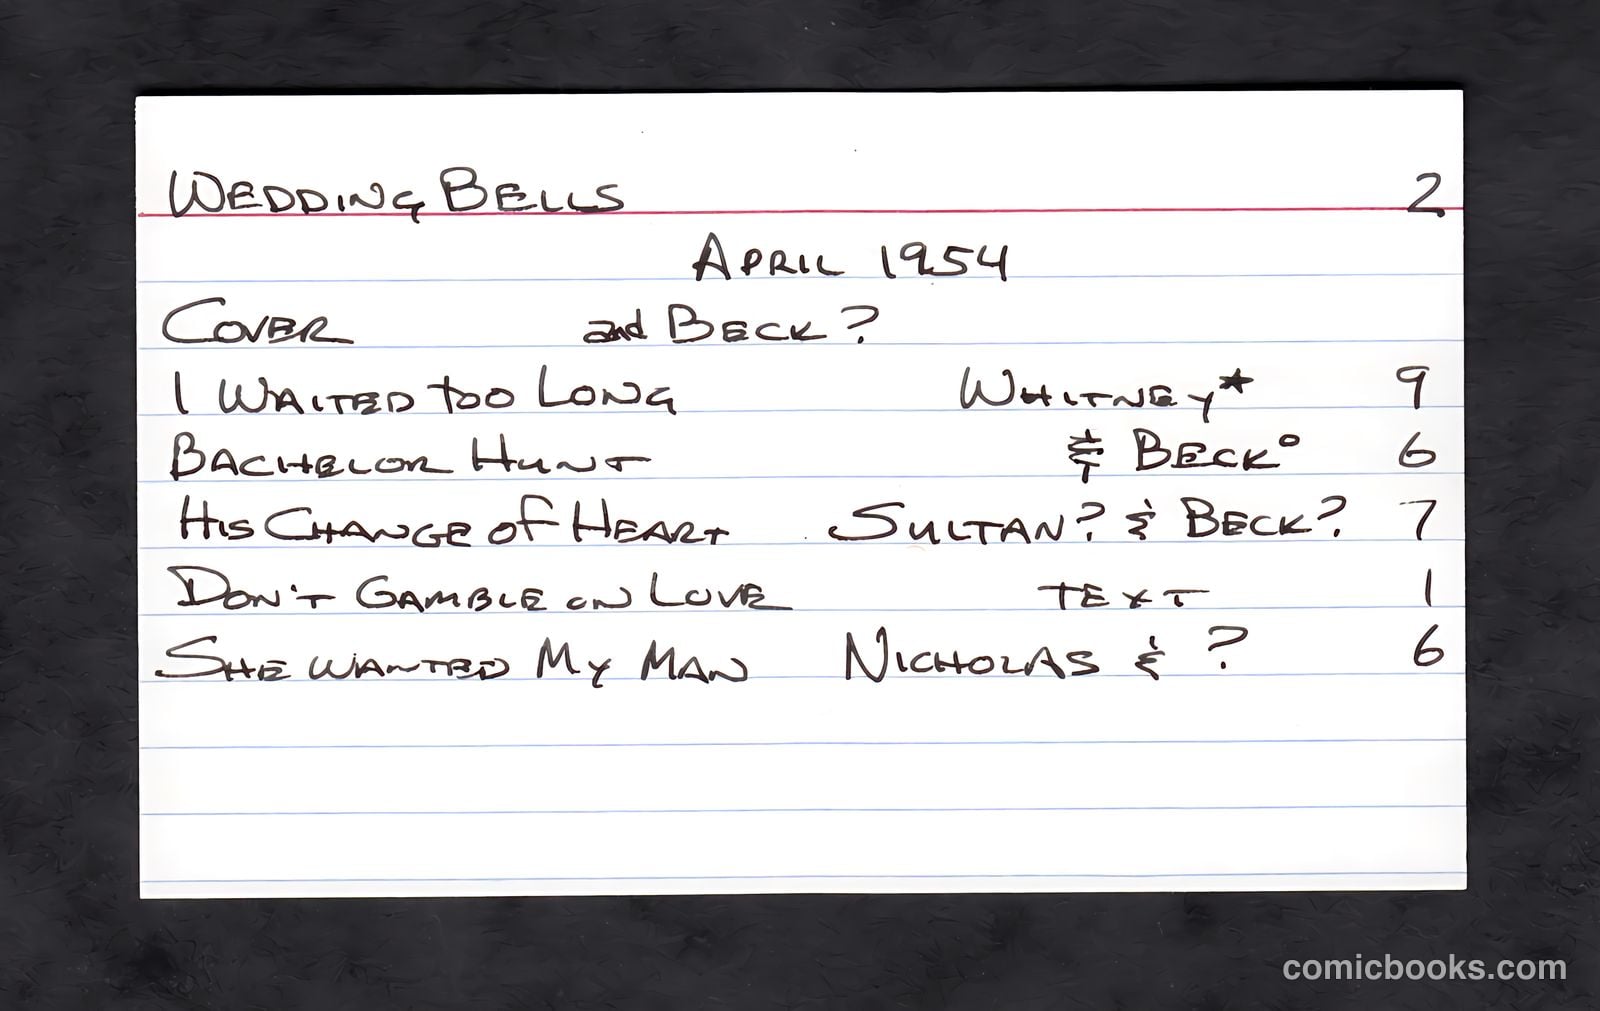 WEDDING BELLS 2
APRIL 1954
COVER and BECK?
I WAITED too LONG WHITNEY* 9
BACHELOR HUNT & BECK° 6
HIS CHANGE of HEART SULTAN? & BECK? 7
DON'T GAMBLE ON LOVE TEXT 1
SHE WANTED MY MAN NICHOLAS & ? 6
comicbooks.com